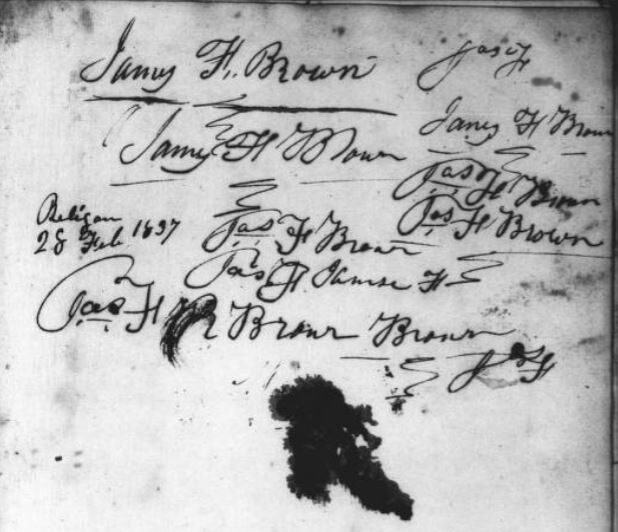 James H. Brown
Jas H
James H Brown
James H Brown
Jas H Brown
28 Feb 1837
Jas H Brown
Jas H Brown
Jas H Jamse H
Jas H
Brown Brown